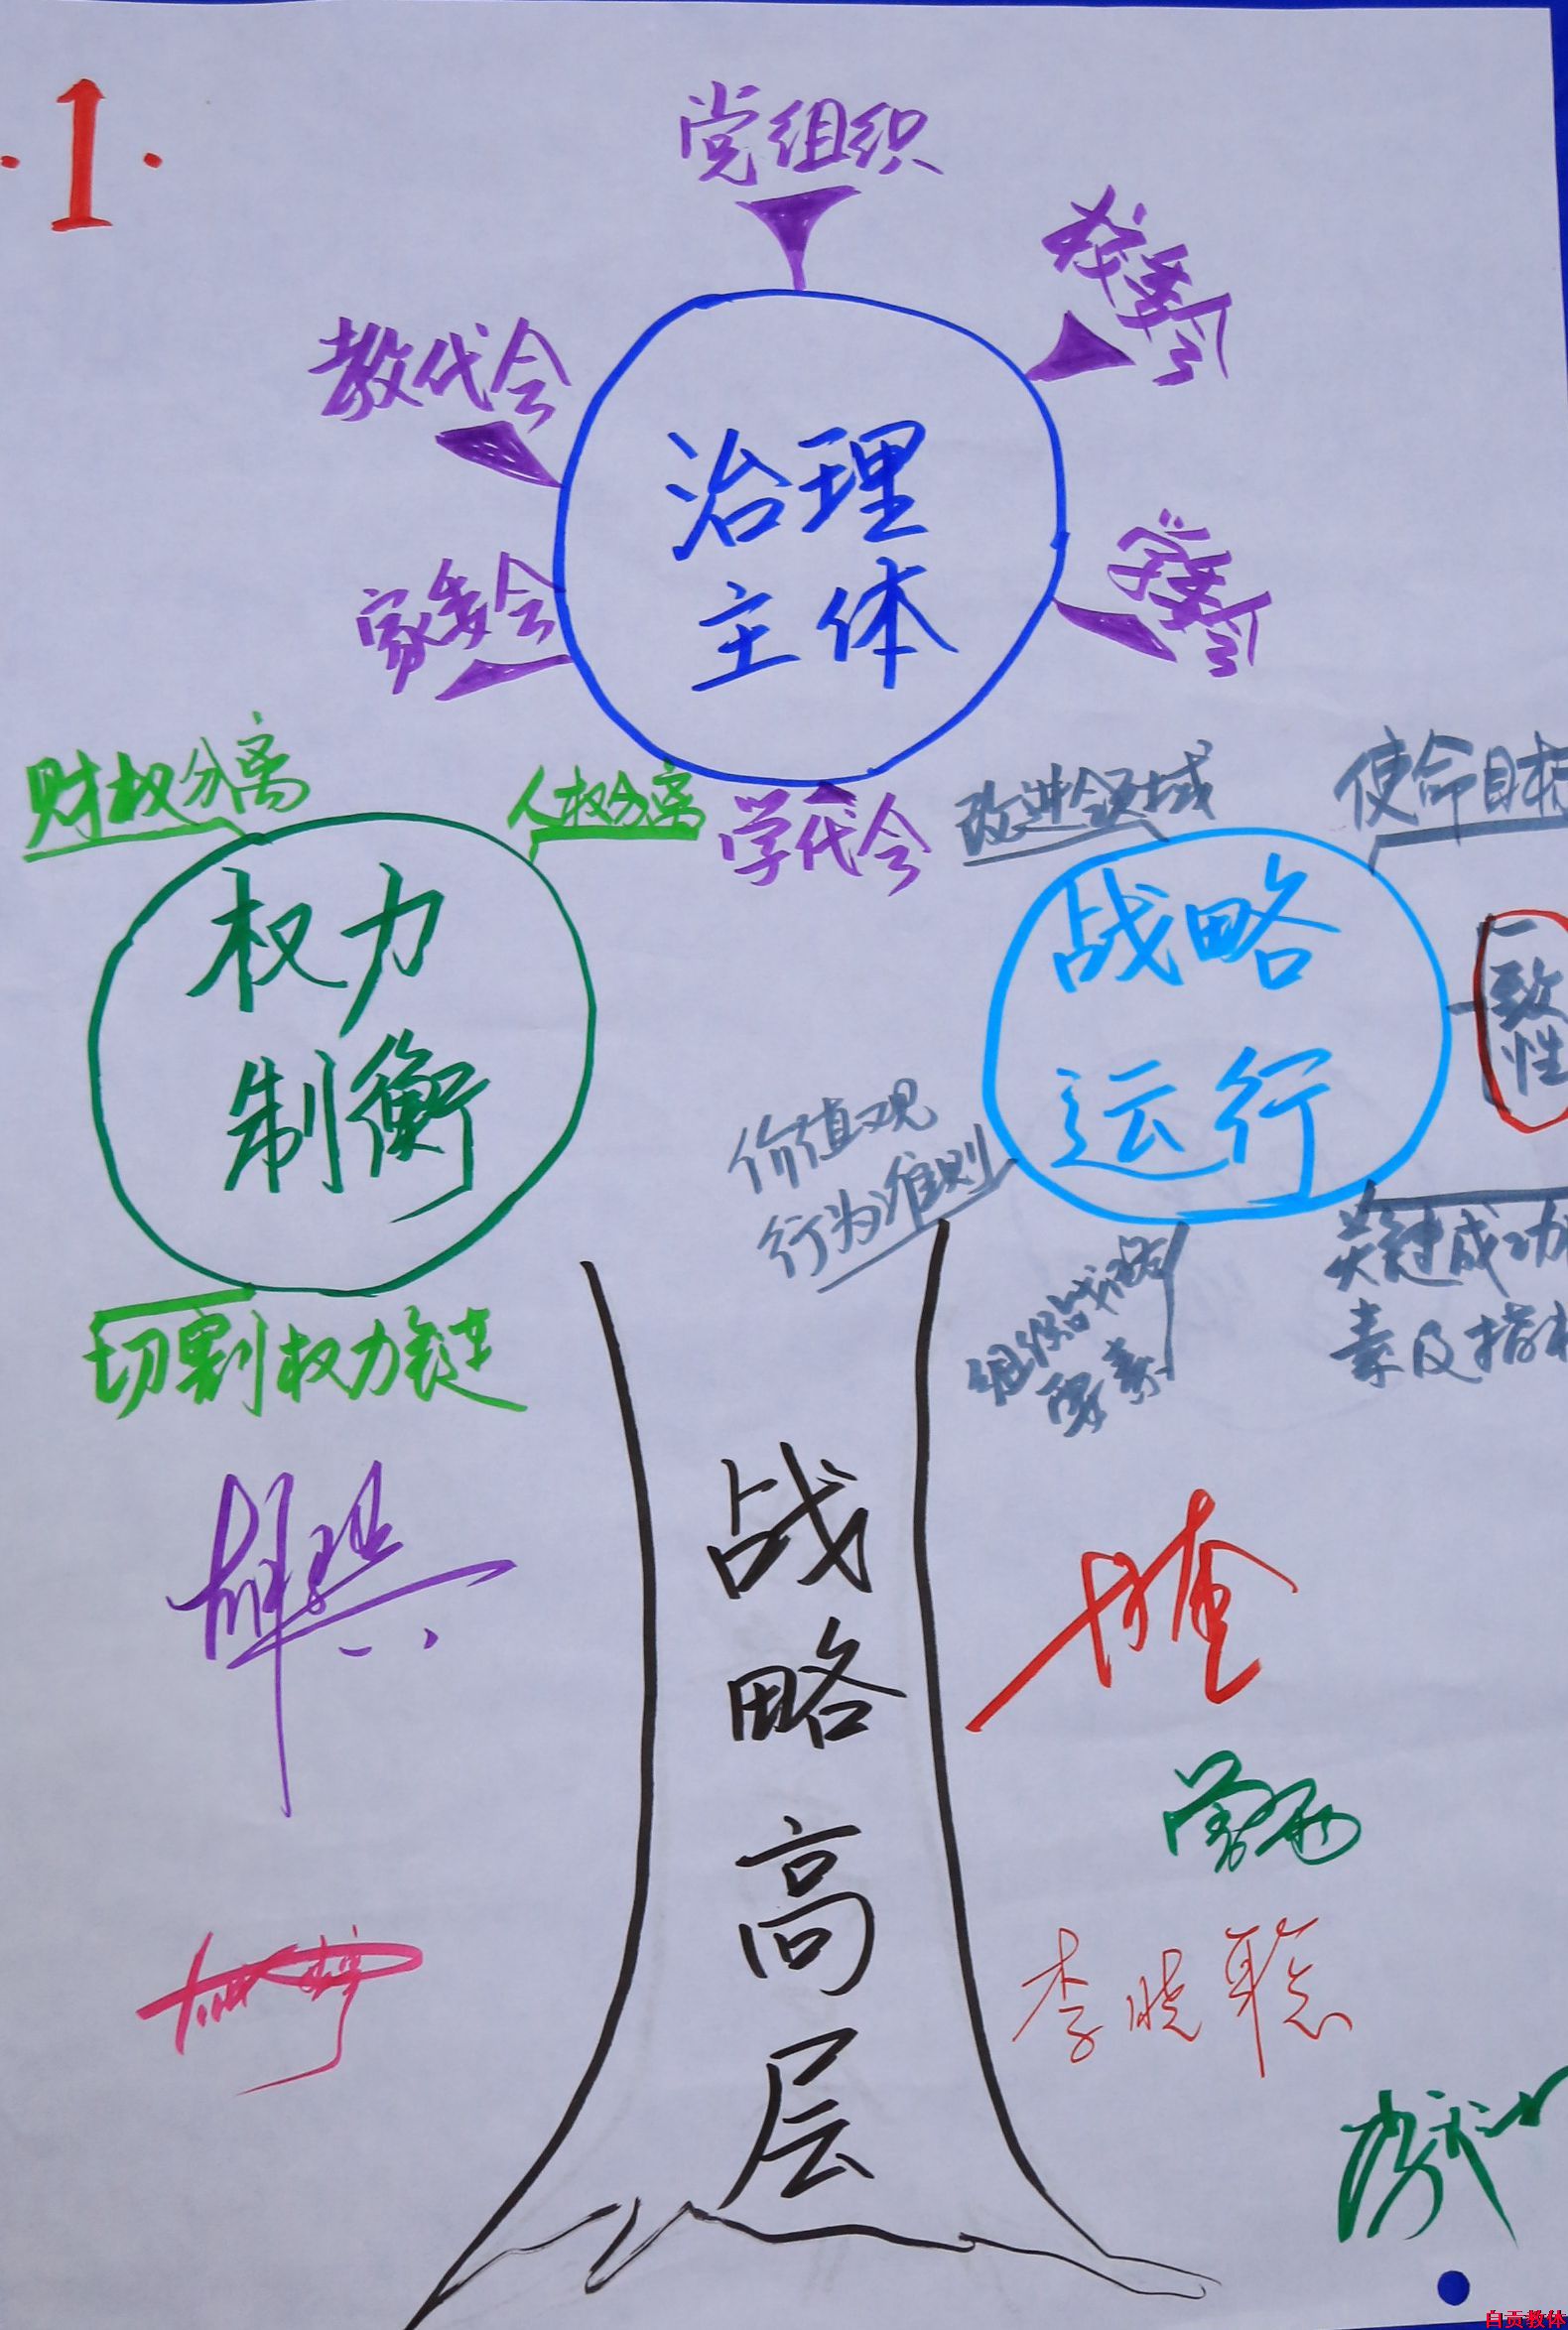 1
党组织
校委会
教代会
治理
主体
学委会
家委会
学代会
财权分离
人权分离
权力
制衡
切割权力链
改进领域
使命目标
战略
运行
一致性
价值观
行为准则
组织战略
要素
关键成功
素及指标
战
略
高
层
李晓聪
自贡教体